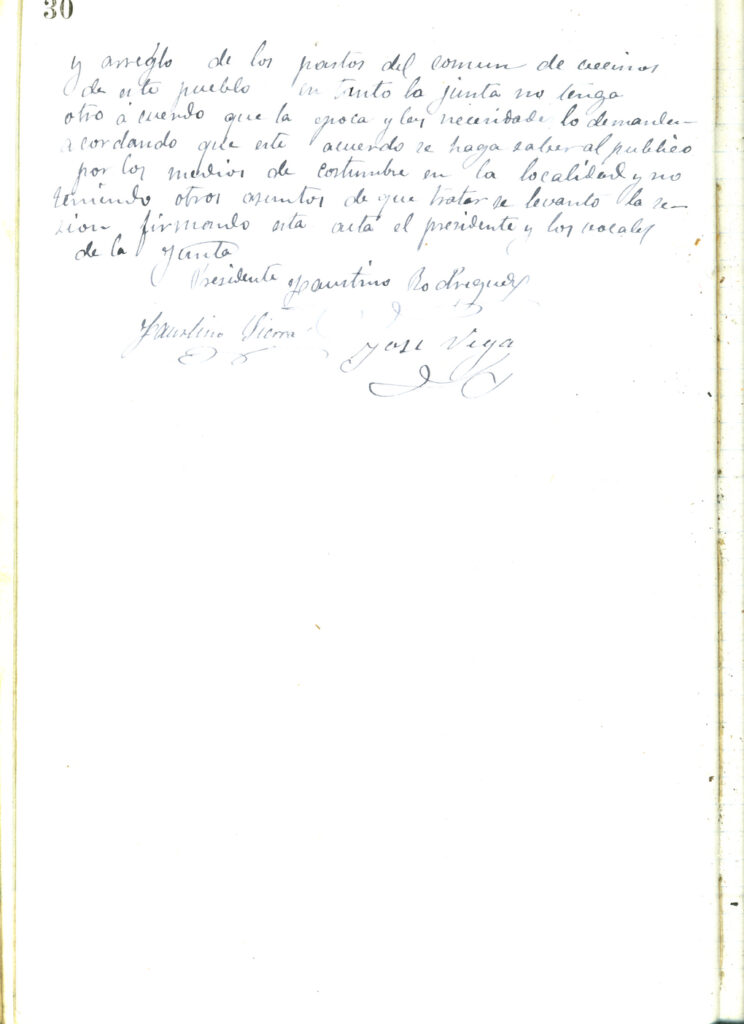 30
y arreglo de los pastos del comun de vecinos
de este pueblo en tanto la junta no tenga
otro acuerdo que la epoca y las necesidade lo demanden
acordando que este acuerdo se haga saber al publico
por los medios de costumbre en la localidad y no
teniendo otros asuntos de que tratar se levanto la se-
sion firmando esta acta el presidente y los vocales
de la Junta
Presidente Faustino Rodriguez
Faustino Sierra
Jose Vega